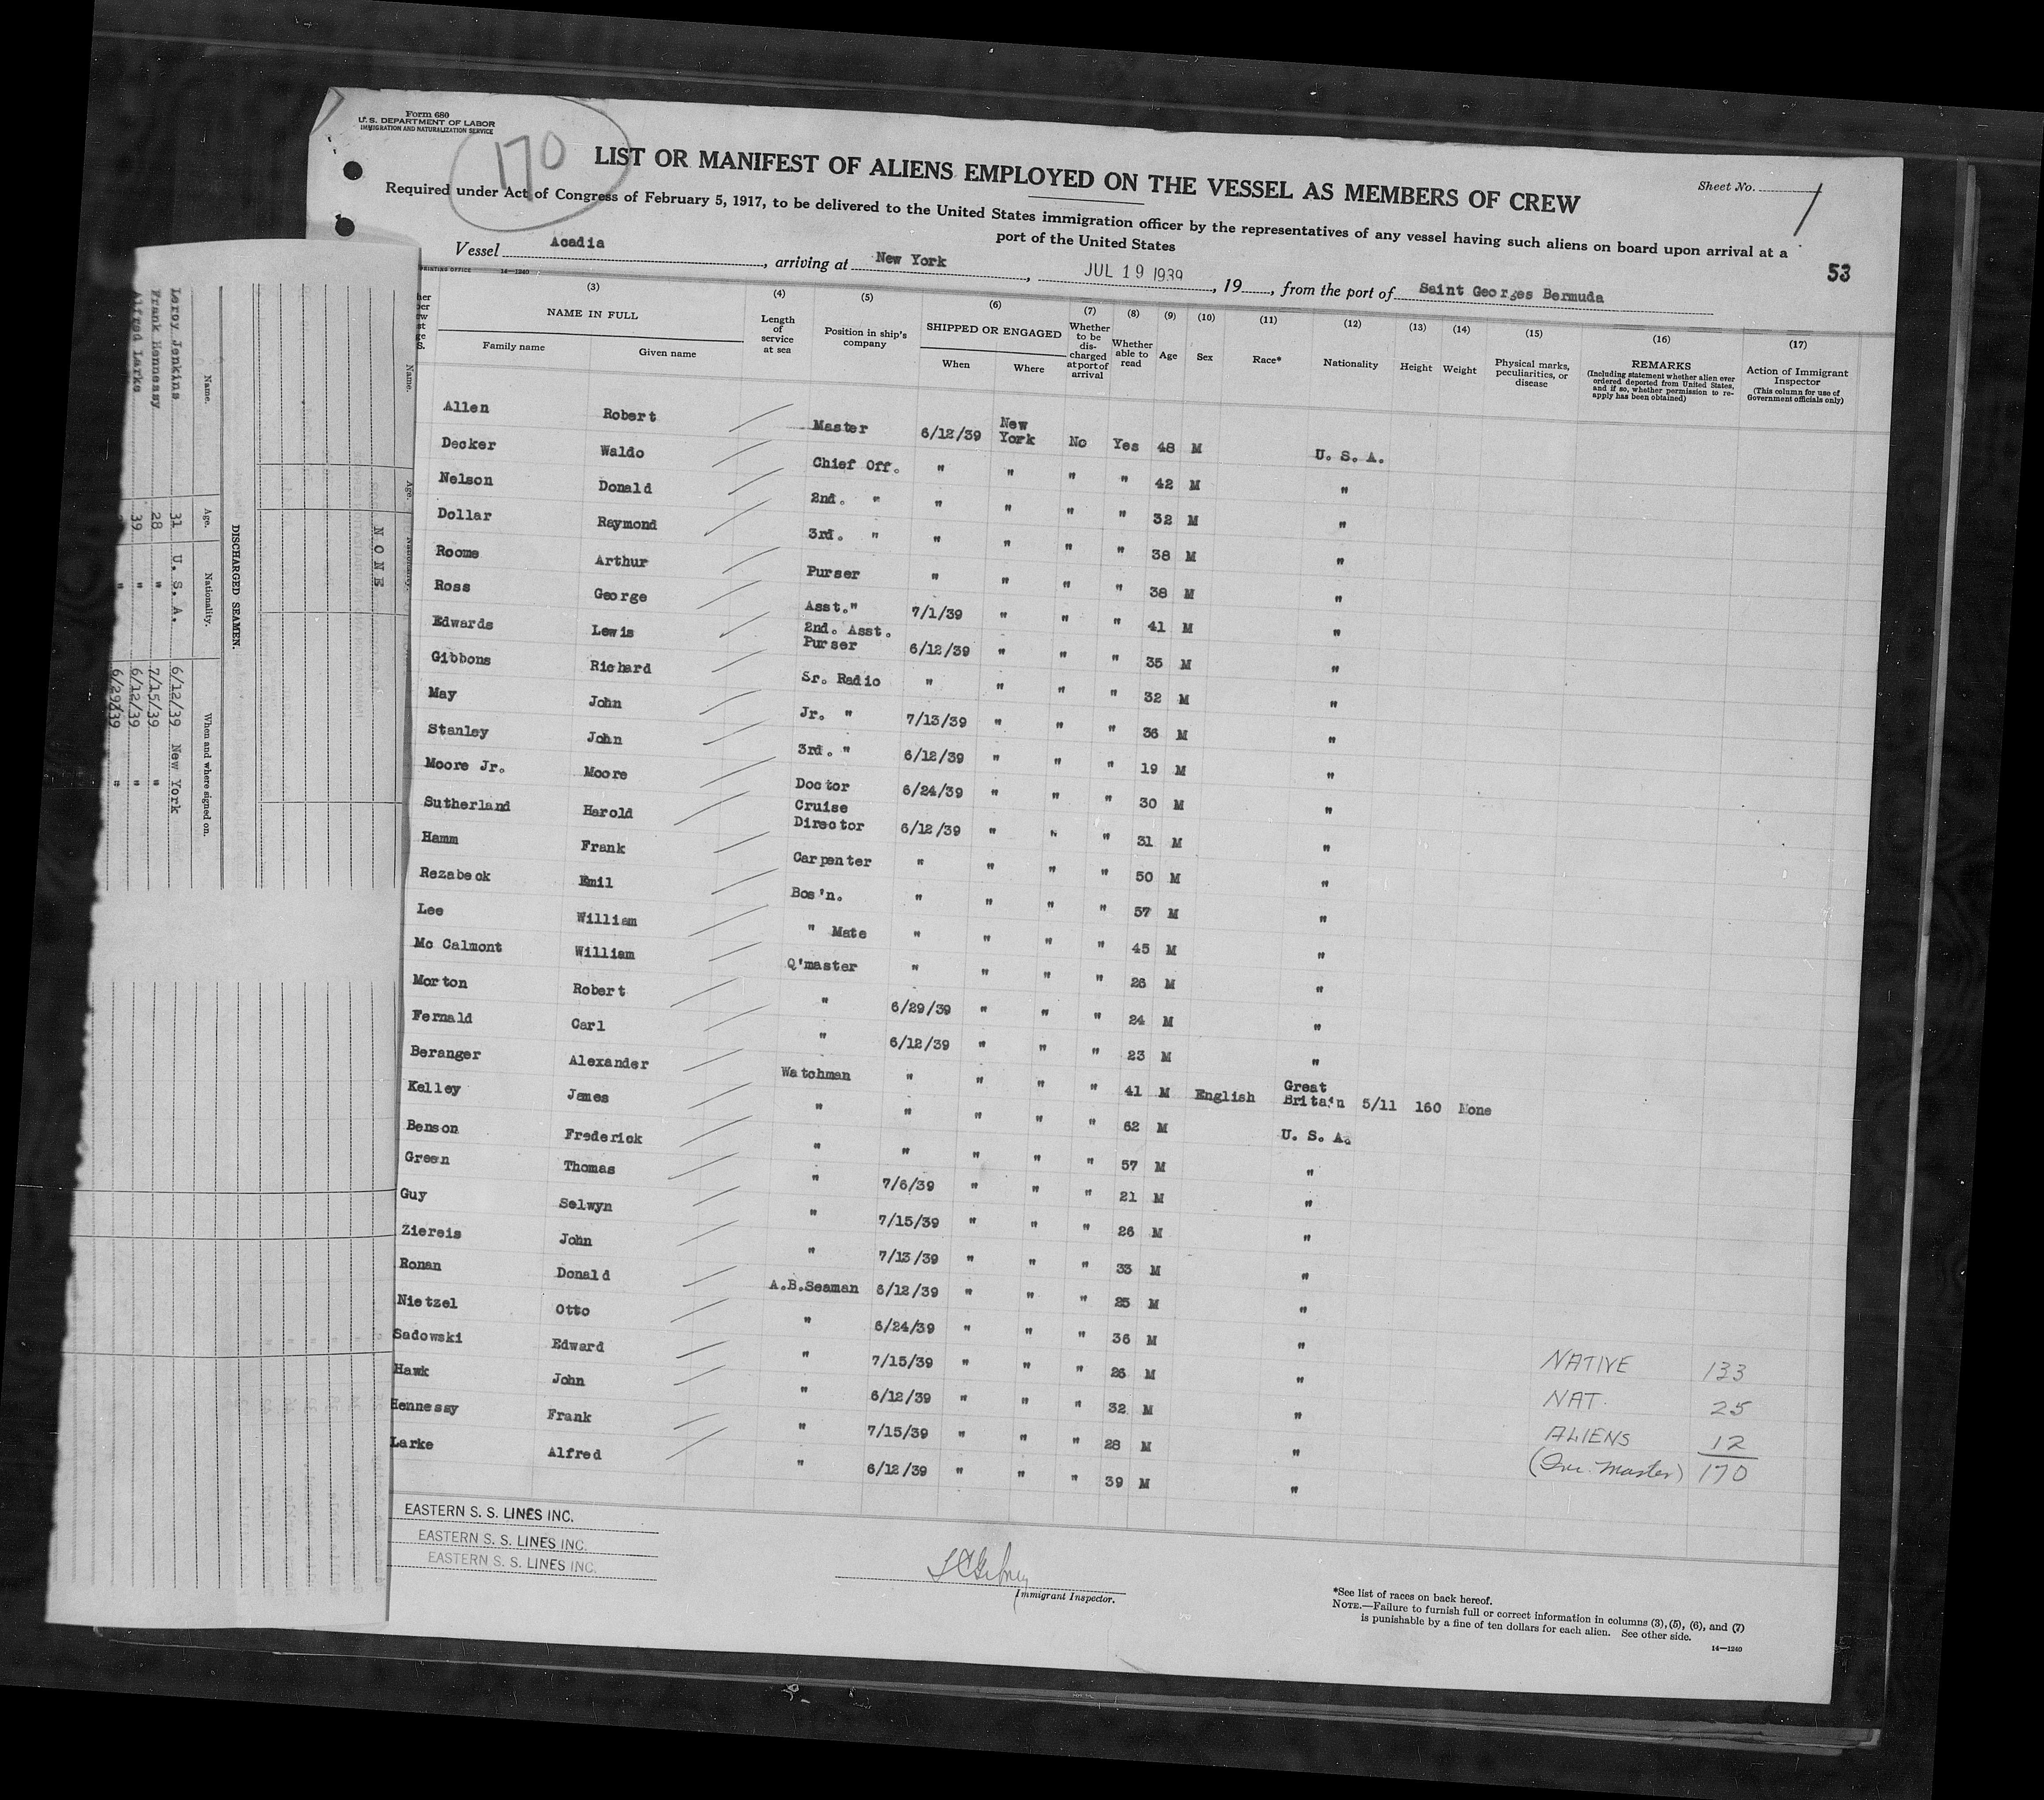 Form 680
U. S. DEPARTMENT OF LABOR
IMMIGRATION AND NATURALIZATION SERVICE
170
LIST OR MANIFEST OF ALIENS EMPLOYED ON THE VESSEL AS MEMBERS OF CREW
Sheet No. 1
Required under Act of Congress of February 5, 1917, to be delivered to the United States immigration officer by the representatives of any vessel having such aliens on board upon arrival at a
port of the United States
Vessel Acadia, arriving at New York, JUL 19 1939, 19, from the port of Saint Georges Bermuda
53
PRINTING OFFICE 14—1240
(3) NAME IN FULL Family name Given name
(4) Length of service at sea
(5) Position in ship's company
(6) SHIPPED OR ENGAGED When Where
(7) Whether to be discharged at port of arrival
(8) Whether able to read
(9) Age
(10) Sex
(11) Race*
(12) Nationality
(13) Height
(14) Weight
(15) Physical marks, peculiarities, or disease
(16) REMARKS (Including statement whether alien ever ordered deported from United States, and if so, whether permission to reapply has been obtained)
(17) Action of Immigrant Inspector (This column for use of Government officials only)
Allen Robert Master 6/12/39 New York No Yes 48 M U. S. A.
Decker Waldo Chief Off. " " " " 42 M "
Nelson Donald 2nd. " " " " " 32 M "
Dollar Raymond 3rd. " " " " " 38 M "
Roome Arthur Purser " " " " 38 M "
Ross George Asst." 7/1/39 " " " 41 M "
Edwards Lewis 2nd. Asst. Purser 6/12/39 " " " 35 M "
Gibbons Richard Sr. Radio " " " " 32 M "
May John Jr. " 7/13/39 " " " 36 M "
Stanley John 3rd. " 6/12/39 " " " 19 M "
Moore Jr. Moore Doctor 6/24/39 " " " 30 M "
Sutherland Harold Cruise Director 6/12/39 " " " 31 M "
Hamm Frank Carpenter " " " " 50 M "
Rezabeck Emil Bos'n. " " " " 57 M "
Lee William " Mate " " " " 45 M "
Mc Calmont William Q'master " " " " 26 M "
Morton Robert " 6/29/39 " " " 24 M "
Fernald Carl " 6/12/39 " " " 23 M "
Beranger Alexander Watchman " " " " 41 M English Great Britain 5/11 160 None
Kelley James " " " " " 62 M U. S. A.
Benson Frederick " " " " " 57 M "
Green Thomas " 7/6/39 " " " 21 M "
Guy Selwyn " 7/15/39 " " " 26 M "
Ziereis John " 7/13/39 " " " 33 M "
Ronan Donald A.B.Seaman 6/12/39 " " " 25 M "
Nietzel Otto " 6/24/39 " " " 36 M "
Sadowski Edward " 7/15/39 " " " 26 M "
Hawk John " 6/12/39 " " " 32 M "
Hennessy Frank " 7/15/39 " " " 28 M "
Larke Alfred " 6/12/39 " " " 39 M "
NATIVE 133
NAT. 25
ALIENS 12
(Inc. Master) 170
EASTERN S. S. LINES INC.
EASTERN S. S. LINES INC.
EASTERN S. S. LINES INC.
Immigrant Inspector.
*See list of races on back hereof.
NOTE.—Failure to furnish full or correct information in columns (3), (5), (6), and (7)
is punishable by a fine of ten dollars for each alien. See other side.
14—1240
Name. Age. Nationality.
NONE
DISCHARGED SEAMEN.
Name. Age. Nationality. When and where signed on.
Leroy Jenkins 31 U. S. A. 6/12/39 New York
Frank Hennessy 28 " 7/15/39 "
Alfred Larke 39 " 6/12/39 "
" 6/29/39 "